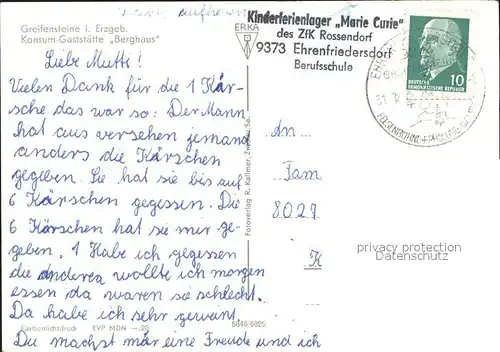 Greifensteine i. Erzgeb.
Konsum-Gaststätte „Berghaus"
Liebe Mutti!
Vielen Dank für die 1 Kär-
sche das war so: Der Mann
hat aus versehen jemand
anders die Kärschen
gegeben. Sie hat sie bis auf
6 Kärschen gegessen. Die
6 Kärschen hat sie mir ge-
geben. 1 Habe ich gegessen
die anderen wollte ich morgen
essen da waren sie schlecht.
Da habe ich sehr geweint.
Du machst mir eine Freude und ich
Farbenlichtdruck EVP MDN —.20
5846/6825
ERKA
Fotoverlag R. Kallmer, Zwickau Sa.
Kinderferienlager „Marie Curie"
des ZfK Rossendorf
9373 Ehrenfriedersdorf
Berufsschule
10
DEUTSCHE
DEMOKRATISCHE REPUBLIK
An
Fam
8027
K
protection
privacy
Datenschutz